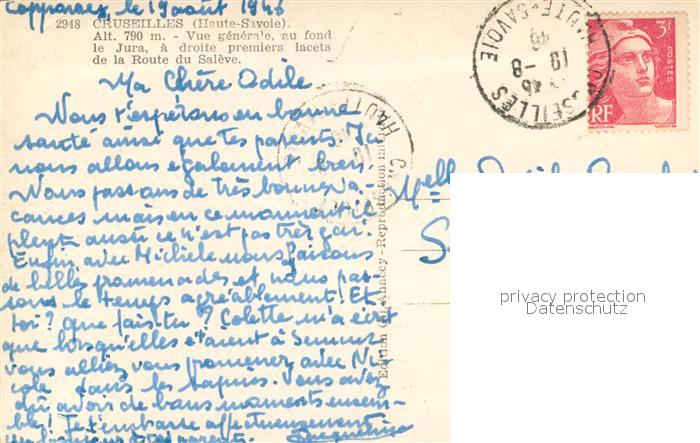 Copponex, le 19 août 1946
2948 CRUSEILLES (Haute-Savoie).
Alt. 790 m. - Vue générale, au fond
le Jura, à droite premiers lacets
de la Route du Salève.
Ma Chère Odile
Nous t'espérons en bonne
santé ainsi que tes parents. Ici
nous allons également bien.
Nous passons de très bonnes va-
cances mais en ce moment il
pleut aussi ce n'est pas très gai.
Enfin avec Michèle nous faisons
de belles promenades et nous pas-
sons le temps agréablement! Et
toi? que fais-tu? Colette m'a écrit
que lorsqu'elles étaient à
vous alliez vous promener avec Ni-
cole dans les sapins. Vous avez
dû avoir de bons moments ensem-
ble! Je t'embrasse affectueusement
tes parents. Jacqueline
Edition Gil, Annecy - Reproduction
CRUSEILLES
HAUTE-SAVOIE
19 - 8
46
3F
POSTES
RF
HAUTE
Melle Odile
S
privacy protection
Datenschutz